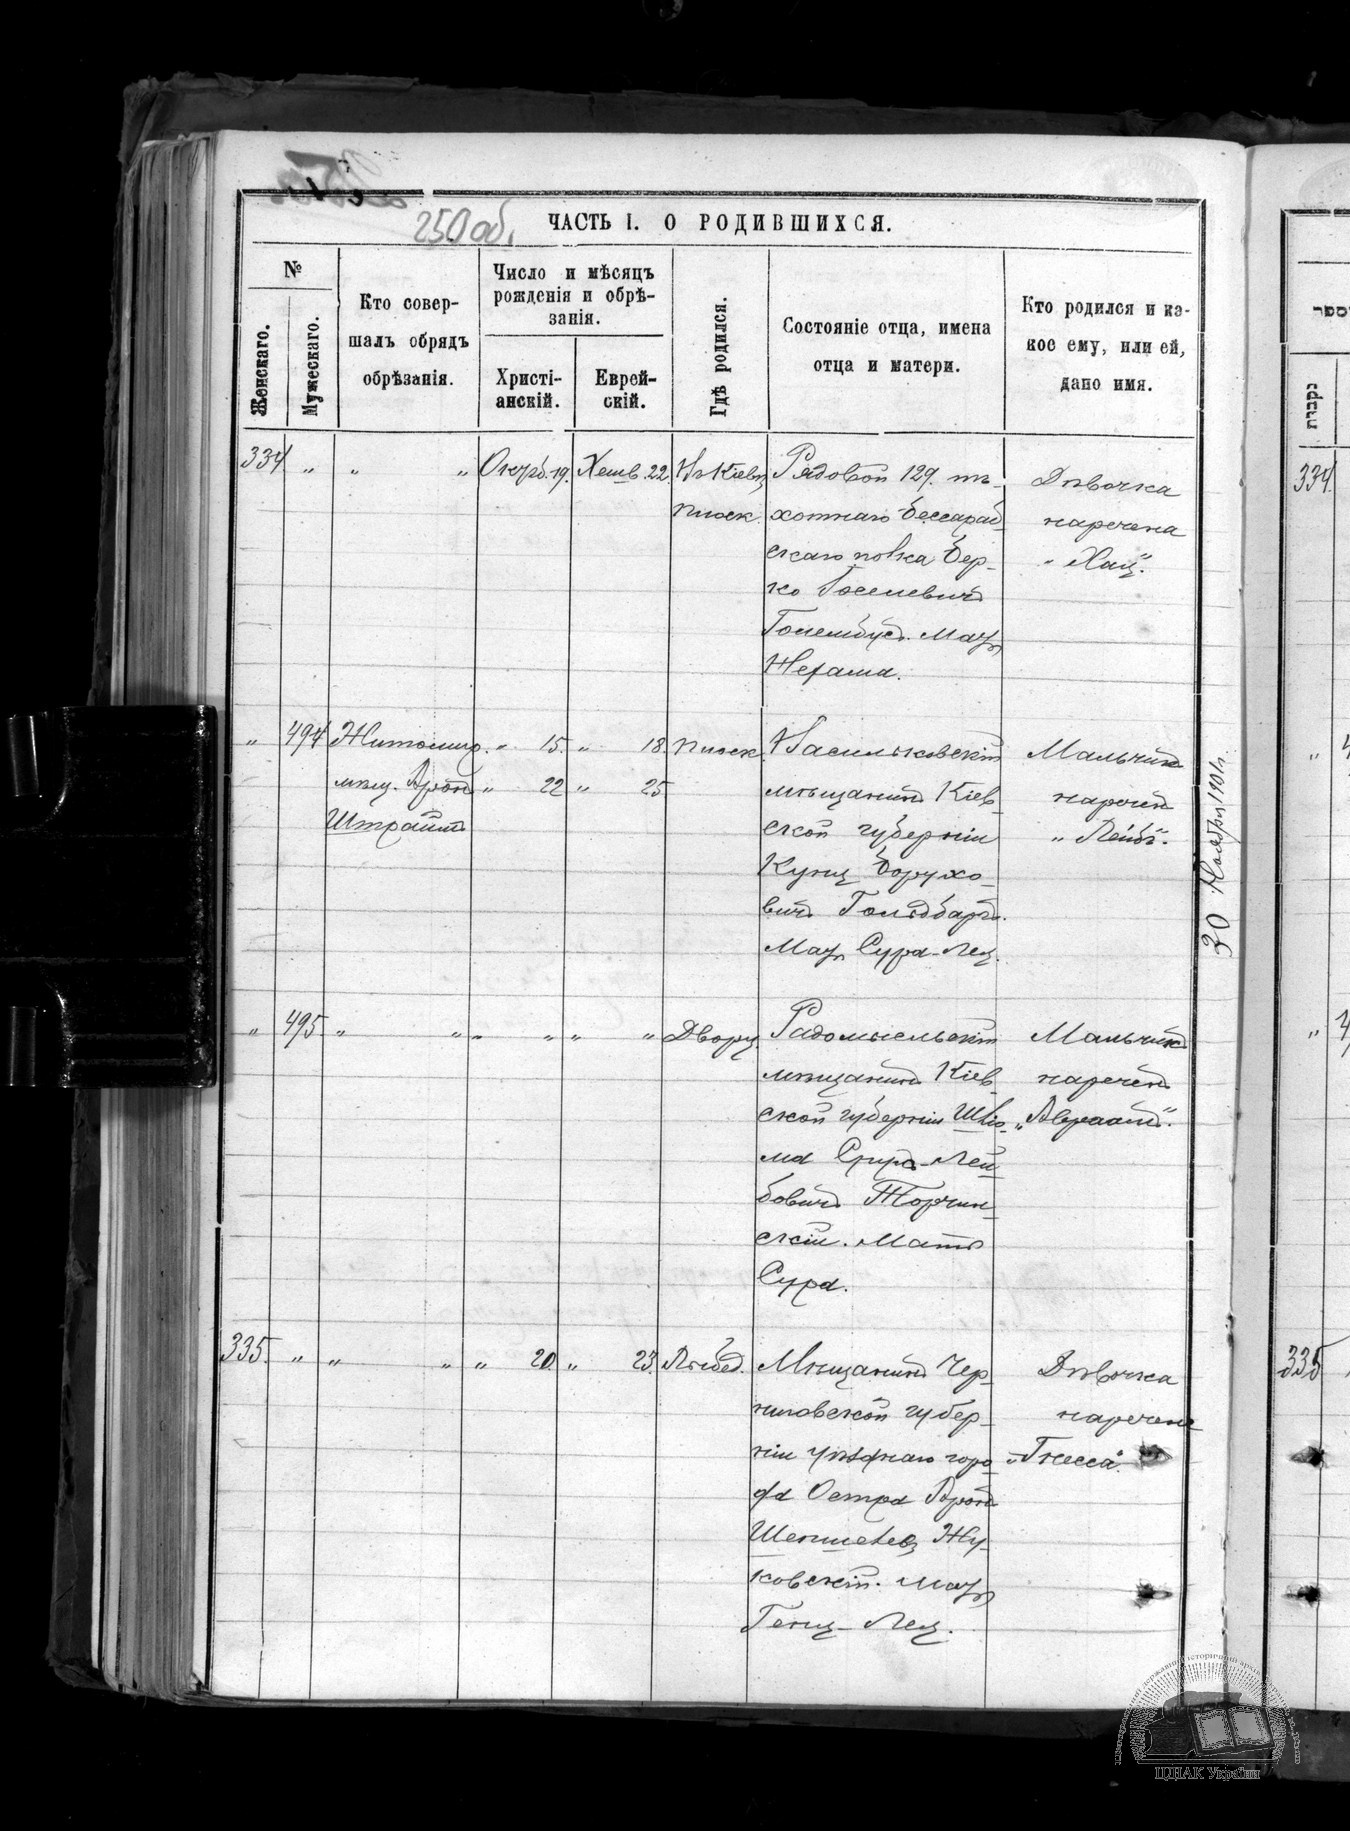 250 об.
ЧАСТЬ I. О РОДИВШИХСЯ.
№
Женскаго.
Мужескаго.
Кто совер-
шалъ обрядъ
обрѣзанія.
Число и мѣсяцъ
рожденія и обрѣ-
занія.
Христі-
анскій.
Еврей-
скій.
Гдѣ родился.
Состояніе отца, имена
отца и матери.
Кто родился и ка-
кое ему, или ей,
дано имя.
334 „ „ „ Октб. 19. Хешв. 22. Въ Кіевѣ
Плоск.
Рядовой 129. пѣ-
хотнаго Бессараб-
скаго полка Бер-
ко Іоселевичъ
Голембусъ. Мать
Нехама.
Дѣвочка
наречена
„Хая".
„ 494 Житомир. „ 15. „ 18. Плоск.
мѣщ. Аронъ „ 22 „ 25
Штрайтъ
Васильковскій
мѣщанинъ Кіев-
ской губерніи
Борухо-
вичъ
Мать Сура-Лея.
Мальчикъ
нареченъ
„Лейбъ".
30 Ноября 1901 г.
„ 495. „ „ „ „ „ „ Дворц.
Радомысльскій
мѣщанинъ Кіев-
ской губерніи Шліо-
ма Сруль-Лей-
бовичъ Торчин-
скій. Мать
Сура.
Мальчикъ
нареченъ
„Авраамъ".
335. „ „ „ „ 20. „ 23. Лыбед.
Мѣщанинъ Чер-
ниговской губер-
ніи уѣзднаго горо-
да Остра Аронъ
Жу-
ковскій. Мать
Геня-Лея.
Дѣвочка
наречена
„Гнесса".
ספר
נקבות
334.
„
„
335
ЦДІАК України